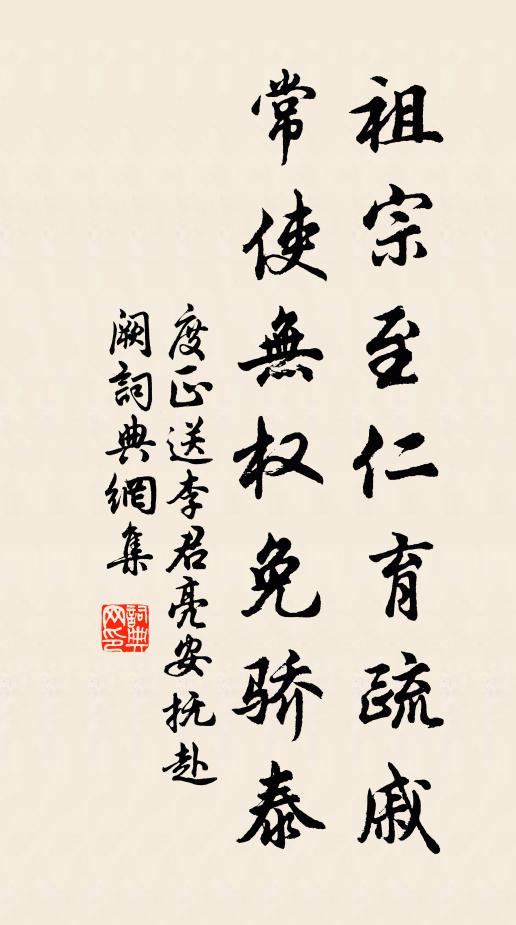 祖宗至仁育疏戚
常使無权免骄泰
度正送李君亮安抚赴
阙詞典網集
詞典网印